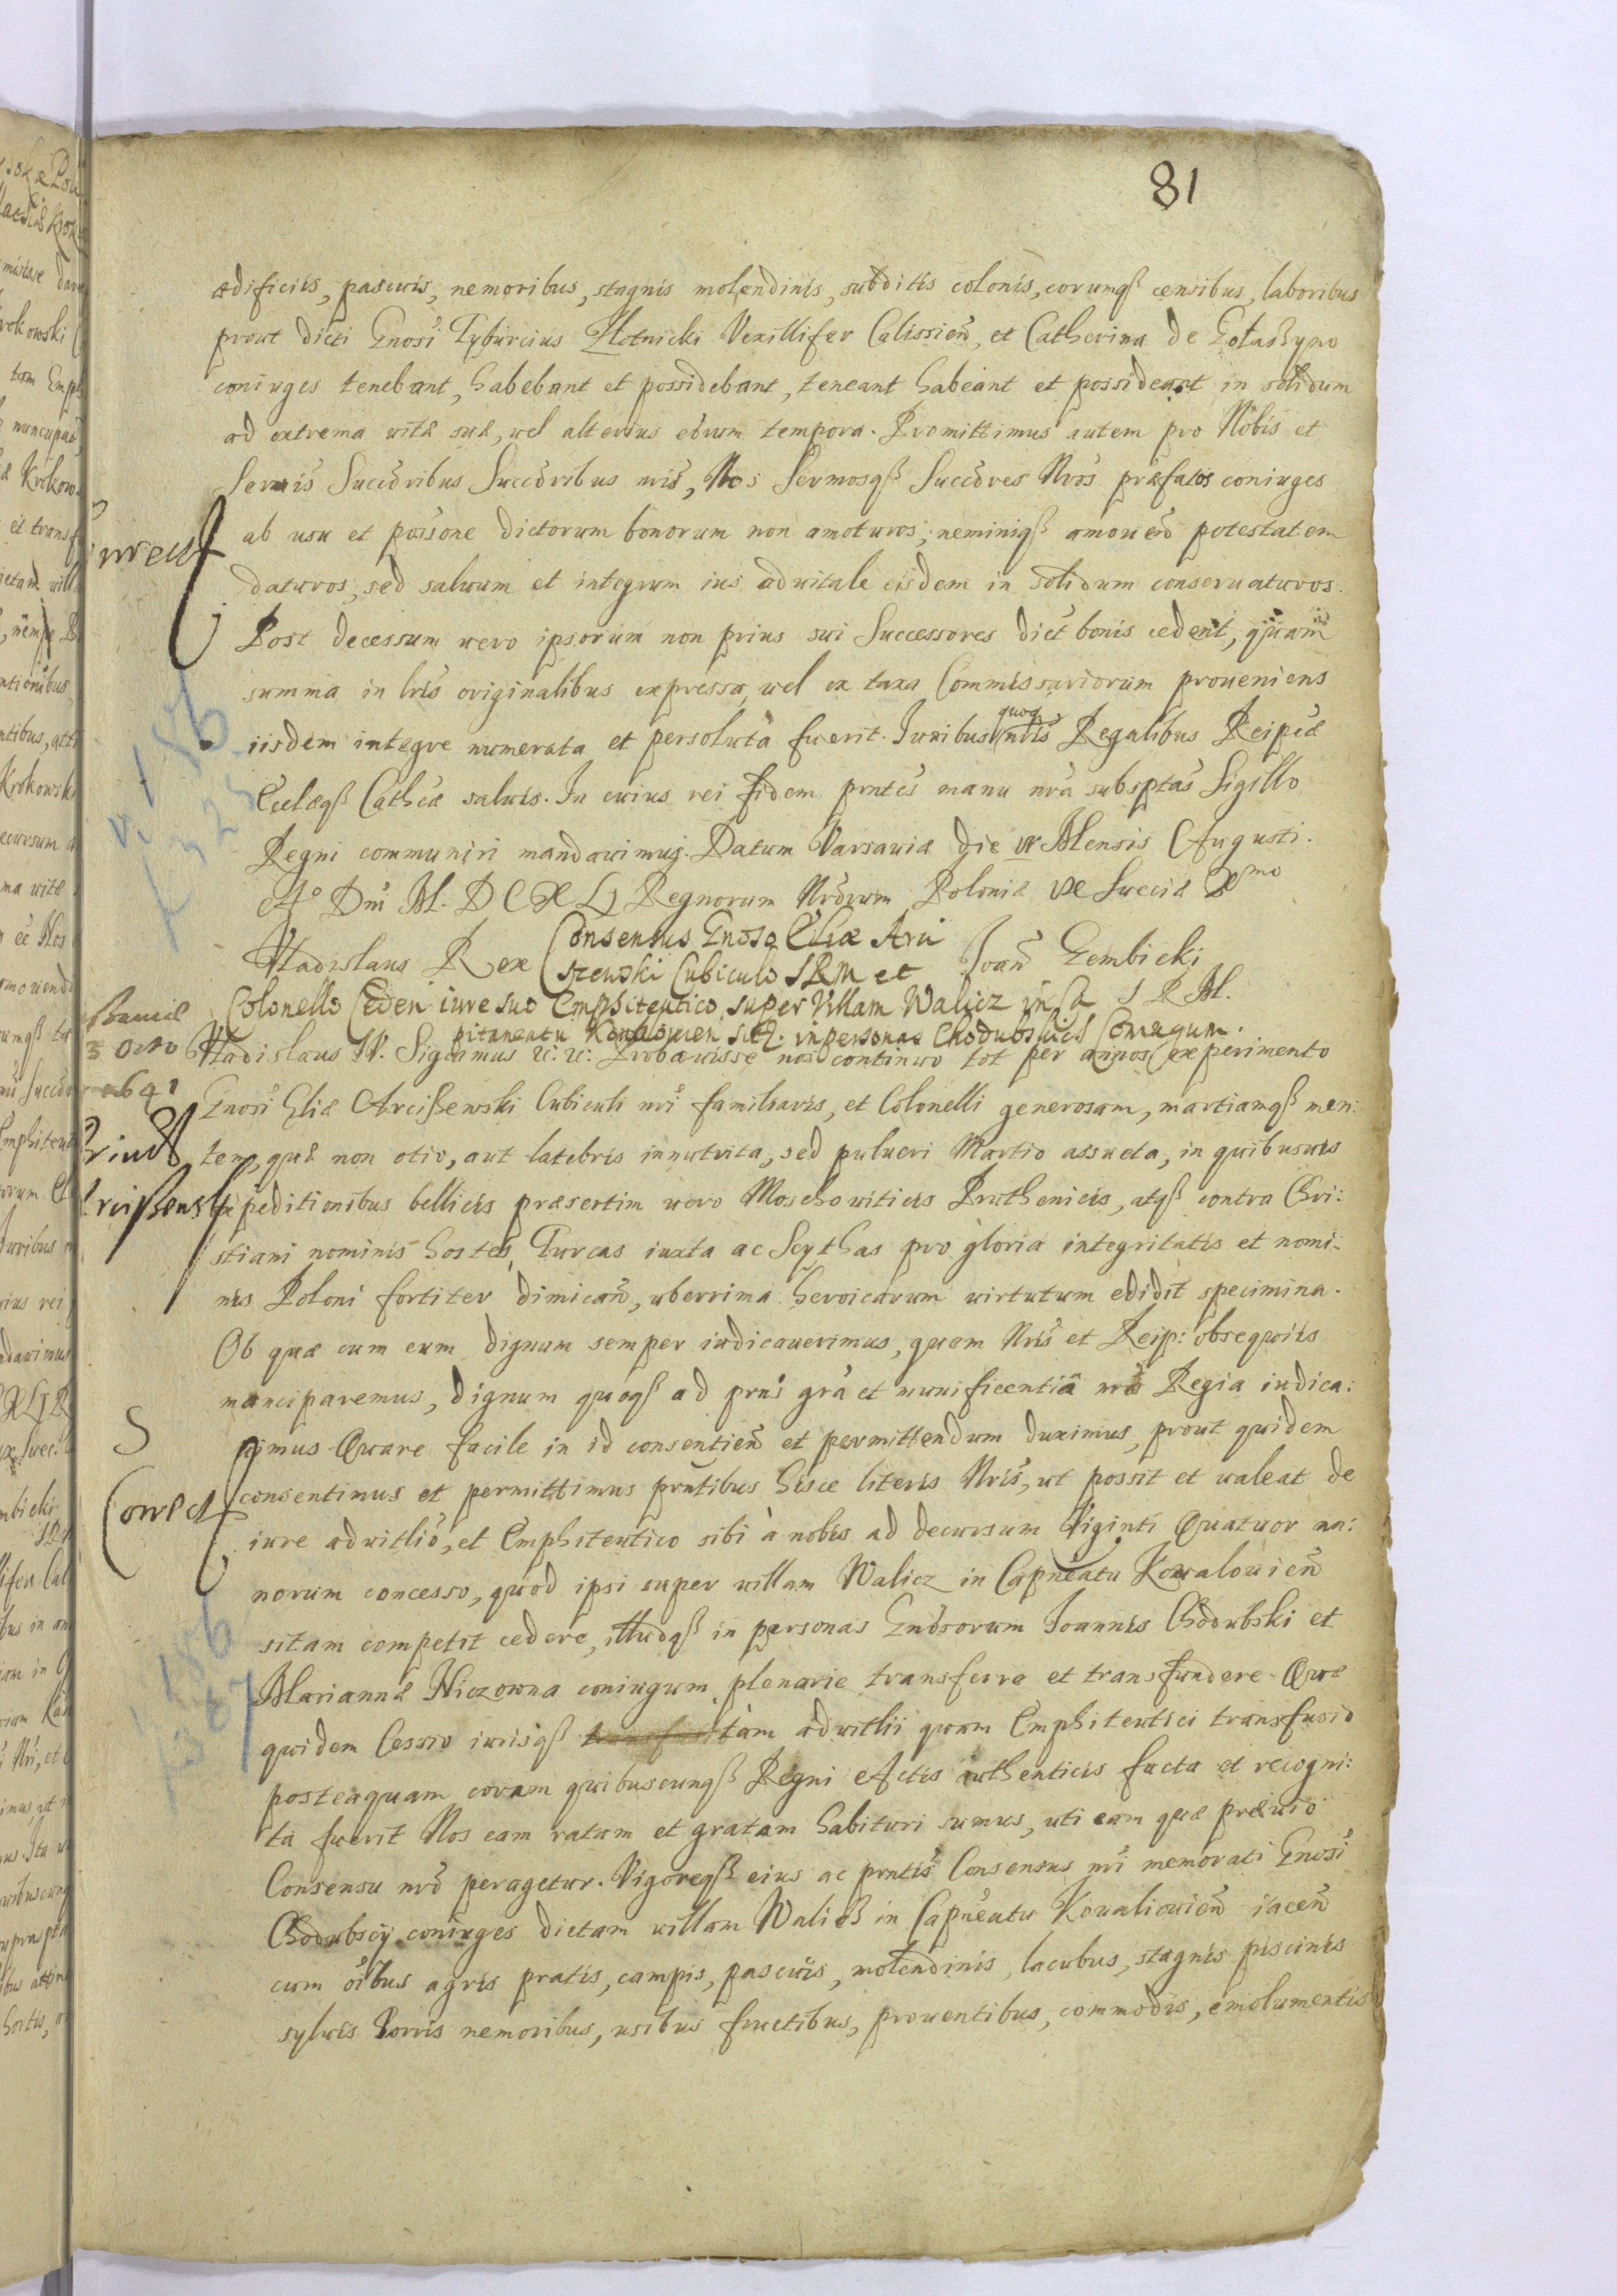 81
ædificiis, pascuis, nemoribus, stagnis molendinis, subditis colonis, eorumqȝ censibus, laboribus
prout dicti Gnosi Tyburcius Zlotnicki Vexillifer Calissien̄, et Catherina de Gołaszyno
coniuges tenebant, habebant et possidebant, teneant habeant et possideant in solidum
ad extrema vitæ suæ, vel alterius eorum tempora. Promittimus autem pro Nobis et
Sermis Succoribus Succoribus nris, Nos Sermosqȝ Succores Nros præfatos coniuges
ab usu et possone dictorum bonorum non amoturos; neminiqȝ amouen̄ potestatem
daturos, sed saluum et integrum ius aduitale eisdem in solidum conseruaturos.
Post decessum uero ipsorum non prius sui Successores dict bonis cedent, quam
summa in lris originalibus expressa, uel ex taxa Commissariorum proueniens
iisdem integre numerata et persoluta fuerit. Iuribus quoq nris Regalibus Reipcæ
Ecclæqȝ Cathcæ saluis. In cuius rei fidem prntes manu nra subsptas Sigillo
Regni communiri mandauimus. Datum Varsauiæ die VI Mensis Augusti.
Aº Dni M. D C X L I Regnorum Nrorum Poloniæ IX Sueciæ Xmo
Vladislaus Rex
Joan̄ Gembicki
S R M.
Consensus Gnoso Eliæ Arci
szewski Cubiculo SRM et
Colonello Ceden iure suo Emphiteutico super Villam Walicz in Ca
pitaneatu Kowalouien sitæ. in personas Chodubskich Coniugum.
1641
Vladislaus IV. Sigismus &c. &c. Probauisse nos continuo tot per annos experimento
Gnosi Eliæ Arcißewski Cubiculi nri familiaris, et Colonelli generosam, martiamqȝ men:
tem, quæ non otio, aut latebris innutrita, sed pulueri Martio assueta, in quibusuis
expeditionibus bellicis præsertim uero Moschouiticis Pruthenicis, atqȝ contra Chri:
stiani nominis hostes, Turcas iuxta ac Scythas pro gloria integritatis et nomi:
nis Poloni fortiter dimican̄, uberrima heroicarum uirtutum edidit specimina.
Ob quæ cum eum dignum semper iudicauerimus, quem Nris et Reip: obsequiis
manciparemus, dignum quoqȝ ad prns gra et munificentiâ nra Regia iudica:
uimus. Quare facile in id consentien̄ et permittendum duximus, prout quidem
consentimus et permittimus prntibus hisce literis Nris, ut possit et ualeat de
iure aduitlio, et Emphiteutico sibi à nobis ad decursum Viginti Quatuor an:
norum concesso, quod ipsi super uillam Walicz in Capneatu Kowalouien̄
sitam competit cedere, illudqȝ in personas Gnosorum Joannis Chodubski et
Mariannæ Niczowna coniugum plenarie transferre et transfundere. Quæ
quidem Cessio iurisqȝ tam aduitlii quam Emphiteutici transfusio
posteaquam coram quibuscunqȝ Regni Actis authenticis facta et recogni:
ta fuerit Nos eam ratam et gratam habituri sumus, uti eam quæ præuio
Consensu nro peragetur. Vigoreqȝ eius ac prntis Consensus nri memorati Gnosi
Chodubscy coniuges dictam uillam Walicȝ in Capneatu Koualiouien̄ iacen̄
cum oibus agris pratis, campis, pascuis, molendinis, lacubus, stagnis piscinis
syluis borris nemoribus, usibus fructibus, prouentibus, commodis, emolumentis